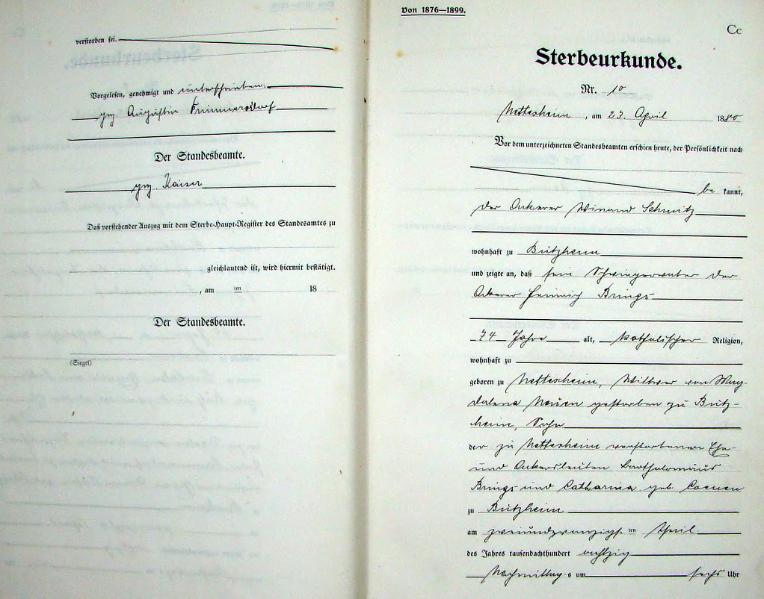 verstorben sei.
Vorgelesen, genehmigt und unterschrieben.
gez. Augustin Frimmersdorf
Der Standesbeamte.
gez. Kaiser
Daß vorstehender Auszug mit dem Sterbe-Haupt-Register des Standesamtes zu
gleichlautend ist, wird hiermit bestätigt.
, am ten 18
Der Standesbeamte.
(Siegel)
Von 1876—1899.
Cc
Sterbeurkunde.
Nr. 10
Nettesheim, am 23. April 1880
Vor dem unterzeichneten Standesbeamten erschien heute, der Persönlichkeit nach
be kannt,
der Ackerer Winand Schmitz
wohnhaft zu Bützheim
und zeigte an, daß sein Schwiegervater der
Ackerer Heinrich Brings
74 Jahre alt, katholischer Religion,
wohnhaft zu
geboren zu Nettesheim, Wittwer von Mag-
dalena gestorben zu Bütz-
heim, Sohn
der zu Nettesheim verstorbenen Ehe-
und Ackersleuten Bartholomäus
Brings und Catharina geb. Coenen
zu Bützheim
am zweiundzwanzigsten April
des Jahres tausendachthundert achtzig
Nachmittags um sechs Uhr